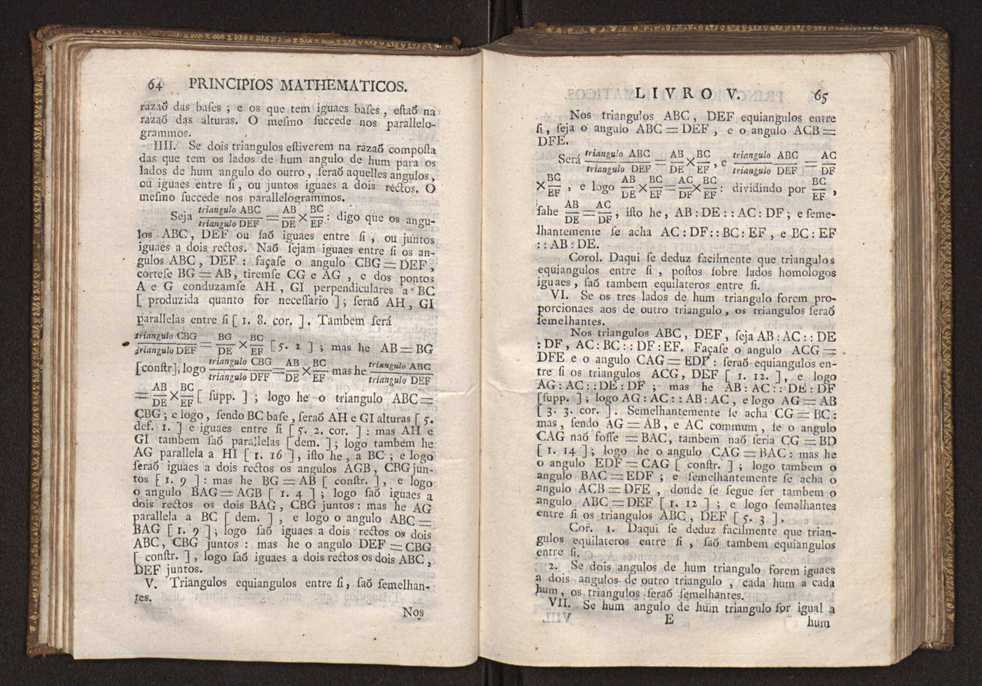 64 PRINCIPIOS MATHEMATICOS.
razaõ das baſes ; e os que tem iguaes baſes , eſtaõ na
razaõ das alturas. O meſmo ſuccede nos parallelo-
grammos.
IIII. Se dois triangulos eſtiverem na razaõ compoſta
das que tem os lados de hum angulo de hum para os
lados de hum angulo do outro , ſeraõ aquelles angulos ,
ou iguaes entre ſi , ou juntos iguaes a dois rectos. O
meſmo ſuccede nos parallelogrammos.
Seja triangulo ABC / triangulo DEF = AB/DE × BC/EF : digo que os angu-
los ABC , DEF ou ſaõ iguaes entre ſi , ou juntos
iguaes a dois rectos. Naõ ſejam iguaes entre ſi os an-
gulos ABC , DEF : façaſe o angulo CBG = DEF ,
corteſe BG = AB , tiremſe CG e AG , e dos pontos
A e G conduzamſe AH , GI perpendiculares a BC
[ produzida quanto for neceſſario ] ; ſeraõ AH , GI
parallelas entre ſi [ 1. 8. cor. ] . Tambem ſerá
triangulo CBG / triangulo DEF = BG/DE × BC/EF [ 5. 2 ] ; mas he AB = BG
[conſtr], logo triangulo CBG / triangulo DFF = AB/DE × BC/EF mas he triangulo ABC / triangulo DEF
= AB/DE × BC/EF [ ſupp. ] ; logo he o triangulo ABC =
CBG ; e logo , ſendo BC baſe , ſeraõ AH e GI alturas [ 5.
def. 1. ] e iguaes entre ſi [ 5. 2. cor. ] : mas AH e
GI tambem ſaõ parallelas [ dem. ] ; logo tambem he
AG parallela a HI [ 1. 16 ] , iſto he , a BC ; e logo
ſeraõ iguaes a dois rectos os angulos AGB , CBG jun-
tos [ 1. 9 ] : mas he BG = AB [ conſtr. ] , e logo
o angulo BAG = AGB [ 1. 4 ] ; logo ſaõ iguaes a
dois rectos os dois BAG , CBG juntos : mas he AG
parallela a BC [ dem. ] , e logo o angulo ABC =
BAG [ 1. 9 ] ; logo ſaõ iguaes a dois rectos os dois
ABC , CBG juntos : mas he o angulo DEF = CBG
[ conſtr. ] , logo ſaõ iguaes a dois rectos os dois ABC ,
DEF juntos.
V. Triangulos equiangulos entre ſi , ſaõ ſemelhan-
tes.
Nos
LIVRO V. 65
Nos triangulos ABC , DEF equiangulos entre
ſi , ſeja o angulo ABC = DEF , e o angulo ACB =
DFE.
Será triangulo ABC / triangulo DEF = AB/DE × BC/EF , e triangulo ABC / triangulo DEF = AC/DF
× BC/EF , e logo AB/DE × BC/EF = AC/DF × BC/EF : dividindo por BC/EF ,
ſahe AB/DE = AC/DF , iſto he , AB : DE : : AC : DF ; e ſeme-
lhantemente ſe acha AC : DF : : BC : EF , e BC : EF
: : AB : DE.
Corol. Daqui ſe deduz facilmente que triangulos
equiangulos entre ſi , poſtos ſobre lados homologos
iguaes , ſaõ tambem equilateros entre ſi.
VI. Se os tres lados de hum triangulo forem pro-
porcionaes aos de outro triangulo , os triangulos ſeraõ
ſemelhantes.
Nos triangulos ABC , DEF , ſeja AB : AC : : DE
: DF , AC : BC : : DF : EF. Façaſe o angulo ACG =
DFE e o angulo CAG = EDF : ſeraõ equiangulos en-
tre ſi os triangulos ACG, DEF [ 1. 12. ] , e logo
AG : AC : : DE : DF ; mas he AB : AC : : DE : DF
[ſupp. ] ; logo AG : AC : : AB : AC , e logo AG = AB
[ 3. 3. cor. ] . Semelhantemente ſe acha CG = BC :
mas , ſendo AG = AB , e AC commum , ſe o angulo
CAG naõ foſſe = BAC, tambem naõ ſeria CG = BD
[ 1. 14 ] ; logo he o angulo CAG = BAC : mas he
o angulo EDF = CAG [ conſtr. ] ; logo tambem o
angulo BAC = EDF ; e ſemelhantemente ſe acha o
angulo ACB = DFE , donde ſe ſegue ſer tambem o
angulo ABC = DEF [ 1. 12 ] ; e logo ſemalhantes
entre ſi os triangulos ABC , DEF [ 5. 3 ] .
Cor. 1. Daqui ſe deduz facilmente que trian-
gulos equilateros entre ſi , ſaõ tambem equiangulos
entre ſi.
2. Se dois angulos de hum triangulo forem iguaes
a dois angulos de outro triangulo , cada hum a cada
hum , os triangulos ſeraõ ſemelhantes.
VII. Se hum angulo de hum triangulo for igual a
E hum